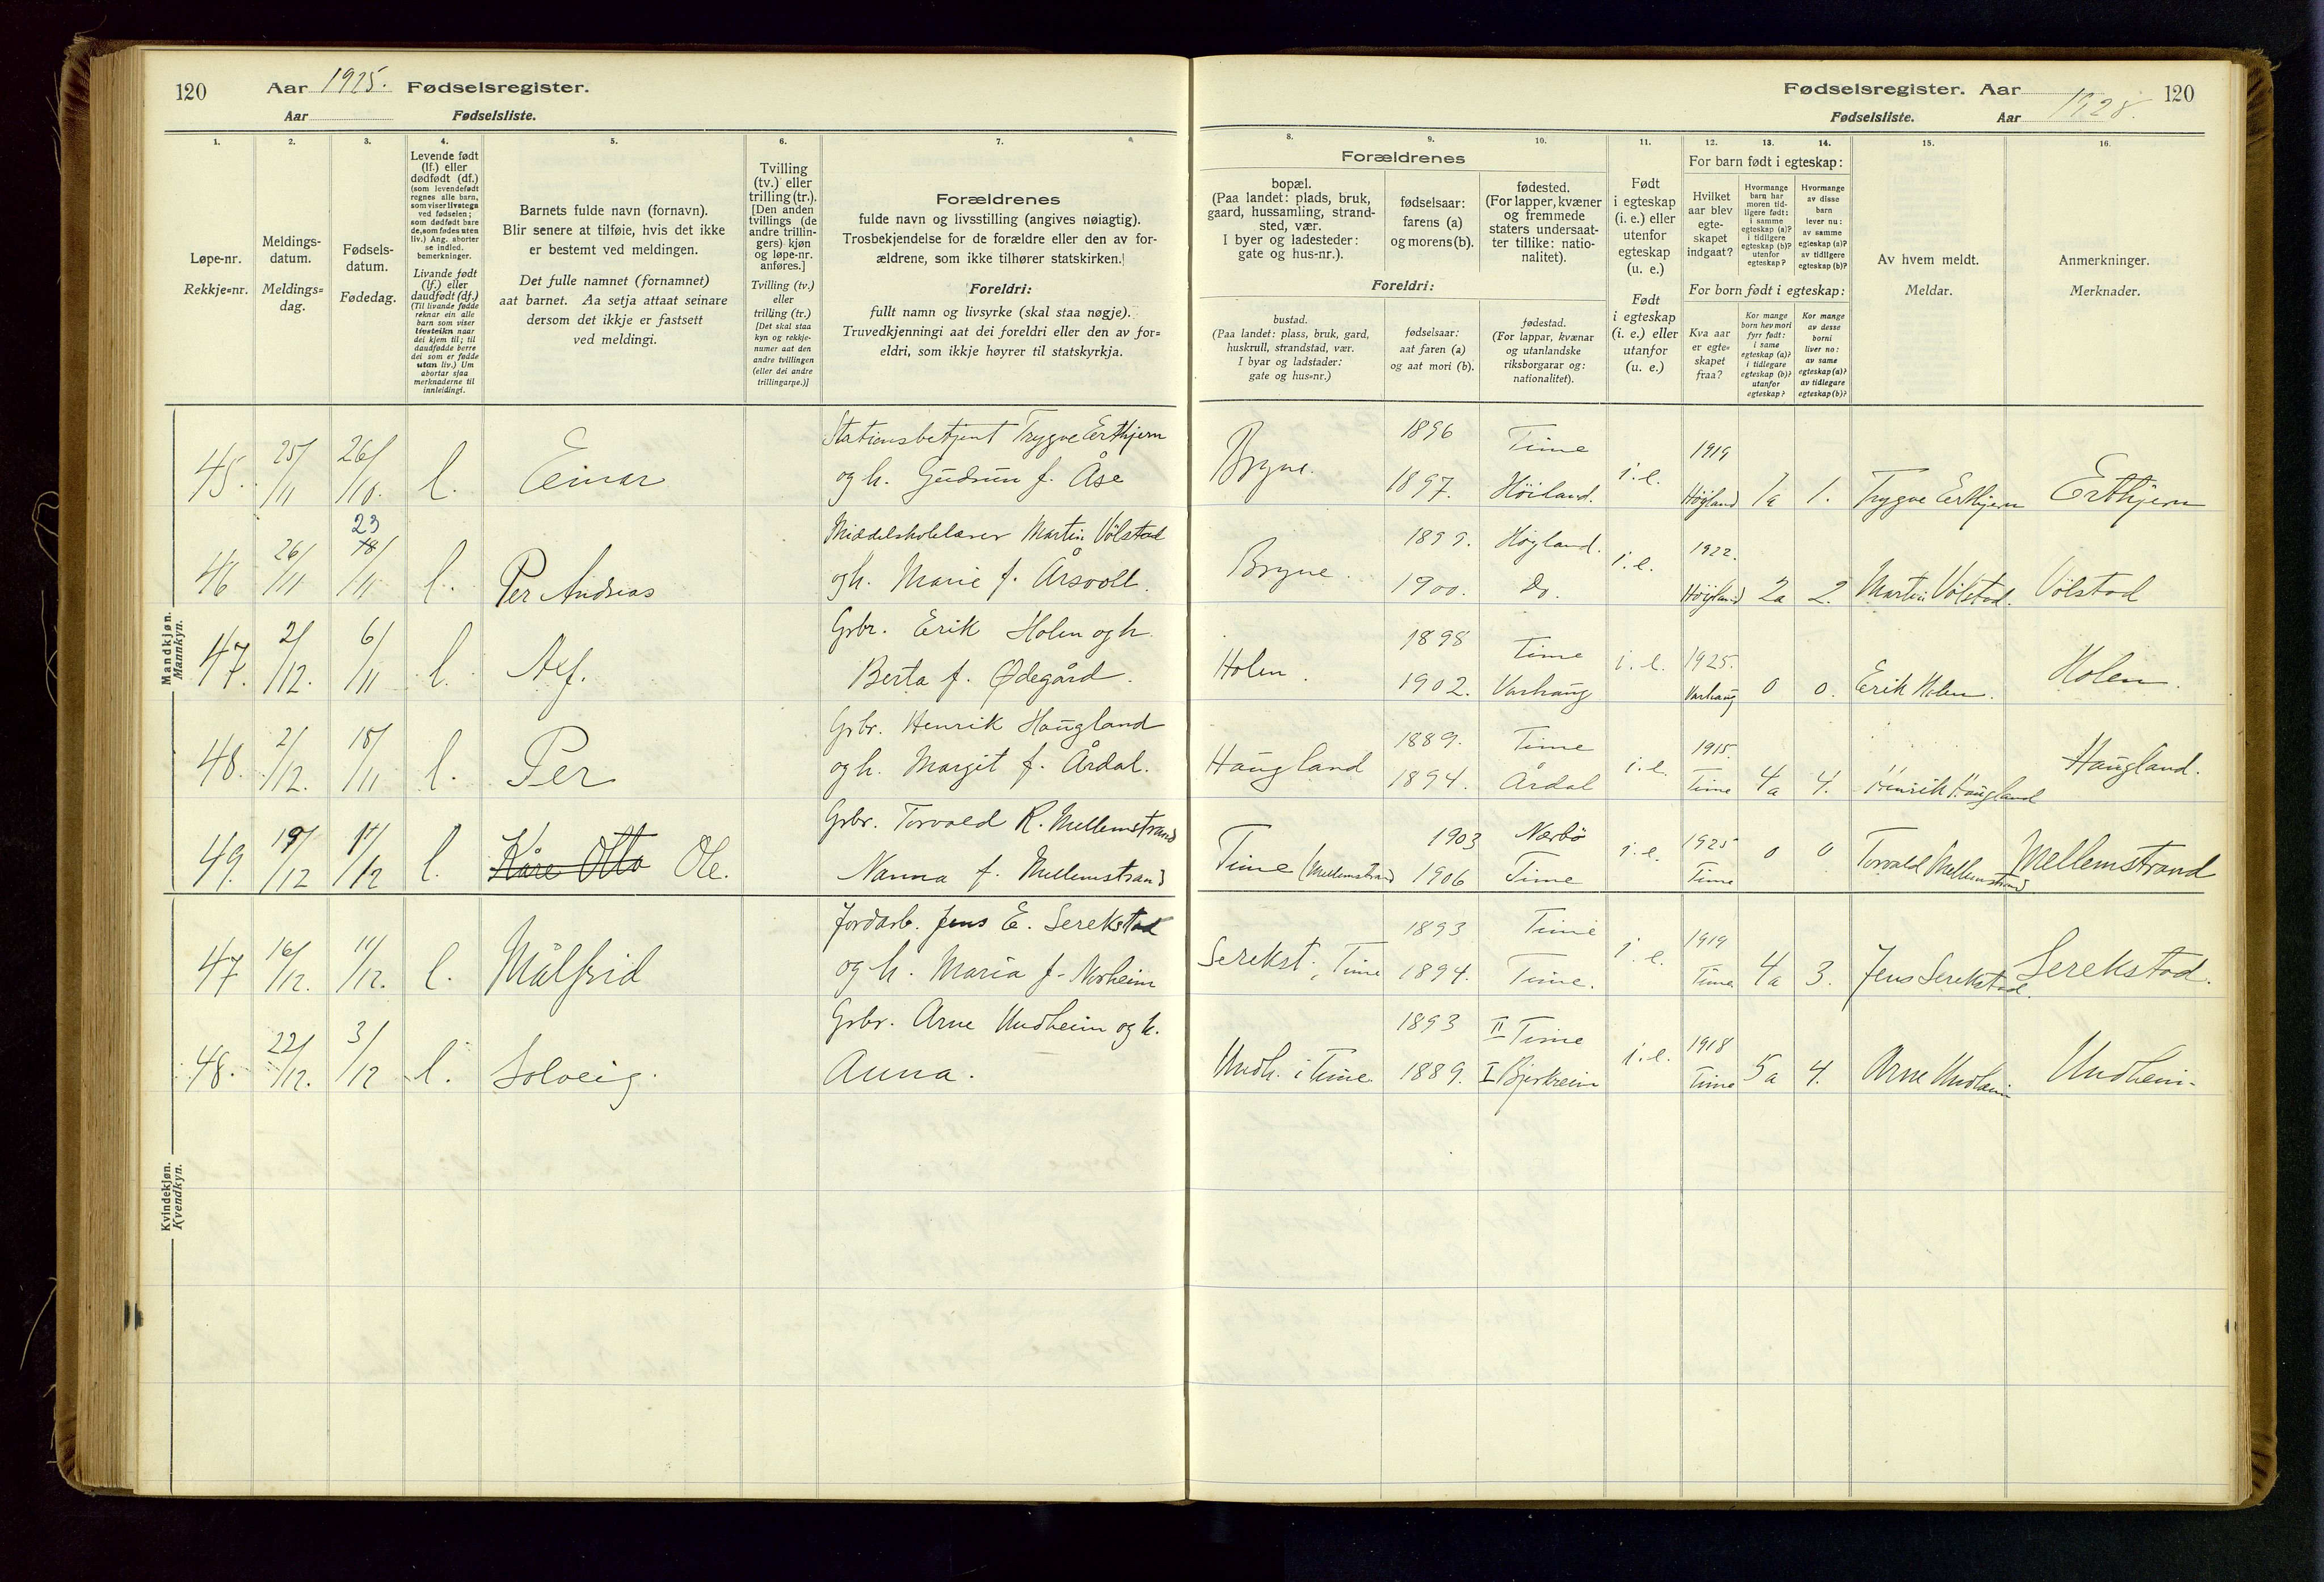 120 Aar 1925. Fødselsregister.
Aar Fødselsliste.
1. 2. 3. 4. 5. 6. 7.
Løpe-nr.
Rekkje=nr.
Meldings-
datum.
Meldings=
dag.
Fødsels-
datum.
Fødedag.
Levende født
(lf.) eller
dødfødt (df.)
(som levendefødt
regnes alle barn,
som viser livstegn
ved fødselen;
som dødfødt bare
de, som fødes uten
liv.) Ang. aborter
se indled.
bemerkninger.
Livande født
(lf.) eller
daudfødt (df.)
(Til livande fødde
reknar ein alle
barn som viser
livsteikn naar
dei kjem til; til
daudfødde berre
dei som er fødde
utan liv.) Um
abortar sjaa
merknaderne til
innleidingi.
Barnets fulde navn (fornavn).
Blir senere at tilføie, hvis det ikke
er bestemt ved meldingen.
Det fulle namnet (fornamnet)
aat barnet. Aa setja attaat seinare
dersom det ikkje er fastsett
ved meldingi.
Tvilling
(tv.) eller
trilling (tr.).
[Den anden
tvillings (de
andre trillin-
gers) kjøn
og løpe-nr.
anføres.]
Tvilling (tv.)
eller
trilling (tr.)
[Det skal staa
kyn og rekkje-
numer aat den
andre tvillingen
(eller dei andre
trillingarne.)]
Forældrenes
fulde navn og livsstilling (angives nøiagtig).
Trosbekjendelse for de forældre eller den av for-
ældrene, som ikke tilhører statskirken.
Foreldri:
fullt namn og livsyrke (skal staa nøgje).
Truvedkjenningi aat dei foreldri eller den av for=
eldri, som ikkje høyrer til statskyrkja.
Mandkjøn.
Mannkyn.
45. 25/11 26/10. l. Einar
Stationsbetjent Trygve Erthjern
og h. Gudrun f. Åse
46 26/11 18 23/11 l. Per Andreas
Middelskolelærer Martin Völstad
og h. Marie f. Årsvoll.
47. 2/12. 6/11 l. Alf.
Grbr. Erik Holen og h.
Berta f. Ødegård.
48. 2/12. 18/11 l. Per
Grbr. Henrik Haugland
og h. Margit f. Årdal.
49. 19/12 11/12 l. Kåre Otto Ole.
Grbr. Torvald R. Mellemstrand
Nanna f. Mellemstrand
Kvindekjøn.
Kvendkyn.
47 16/12. 11/12. l. Målfrid
Jordarb. Jens E. Serekstad
og h. Maria f. Norheim
48. 22/12. 3/12 l. Solveig.
Grbr. Arne Undheim og h.
Anna.
Fødselsregister. Aar 120
Fødselsliste. Aar 1925.
8. 9. 10. 11. 12. 13. 14. 15. 16.
Forældrenes
bopæl.
(Paa landet: plads, bruk,
gaard, hussamling, strand-
sted, vær.
I byer og ladesteder:
gate og hus-nr.).
fødselsaar:
farens (a)
og morens (b).
fødested.
(For lapper, kvæner
og fremmede
staters undersaat-
ter tillike: natio-
nalitet).
Foreldri:
bustad.
(Paa landet: plass, bruk, gard,
huskrull, strandstad, vær.
I byar og ladstader:
gate og hus=nr.)
fødselsaar:
aat faren (a)
og aat mori (b).
fødestad.
(For lappar, kvænar
og utanlandske
riksborgarar og:
nationalitet).
Født
i egteskap
(i. e.) eller
utenfor
egteskap
(u. e.)
Født
i egteskap
(i. e.) eller
utanfor
(u. e.)
For barn født i egteskap:
Hvilket
aar blev
egte-
skapet
indgaat?
Hvormange
barn har
moren tid-
ligere født:
i samme
egteskap (a)?
i tidligere
egteskap (b)?
utenfor
egteskap?
Hvormange
av disse
barn
lever nu:
av samme
egteskap (a)?
av tidligere
egteskap (b)?
For born født i egteskap:
Kva aar
er egte=
skapet
fraa?
Kor mange
born hev mori
fyrr født:
i same
egteskap (a)?
i tidlegare
egteskap (b)?
utanfor
egteskap?
Kor mange
av desse
borni
liver no:
av same
egteskap (a)?
av tidlegare
egteskap (b)?
Av hvem meldt.
Meldar.
Anmerkninger.
Merknader.
Bryne. 1896 Time i. e. 1919
1897. Höiland. Höyland 1a 1. Trygve Erthjern Erthjern
Bryne. 1899. Høyland. i. e. 1922.
1900. Do. Höyland 2a 2. Martin Völstad. Völstad
Holen. 1898 Time i. e. 1925.
1902. Varhaug Varhaug 0 0. Erik Holen. Holen.
Haugland 1889. Time i. e. 1915.
1894. Årdal Time 4a 4. Henrik Haugland Haugland.
Time (Mellemstrand 1903 Nærbö i. e. 1925
1906 Time Time 0 0 Torvald Mellemstrand Mellemstrand
Serekst., Time 1893 Time i. e. 1919
1894. Time. Time 4a 3. Jens Serekstad. Serekstad.
Undh. i Time. 1893 II Time i. e. 1918
1889. I Bjerkreim Time 5a 4. Arne Undheim Undheim.